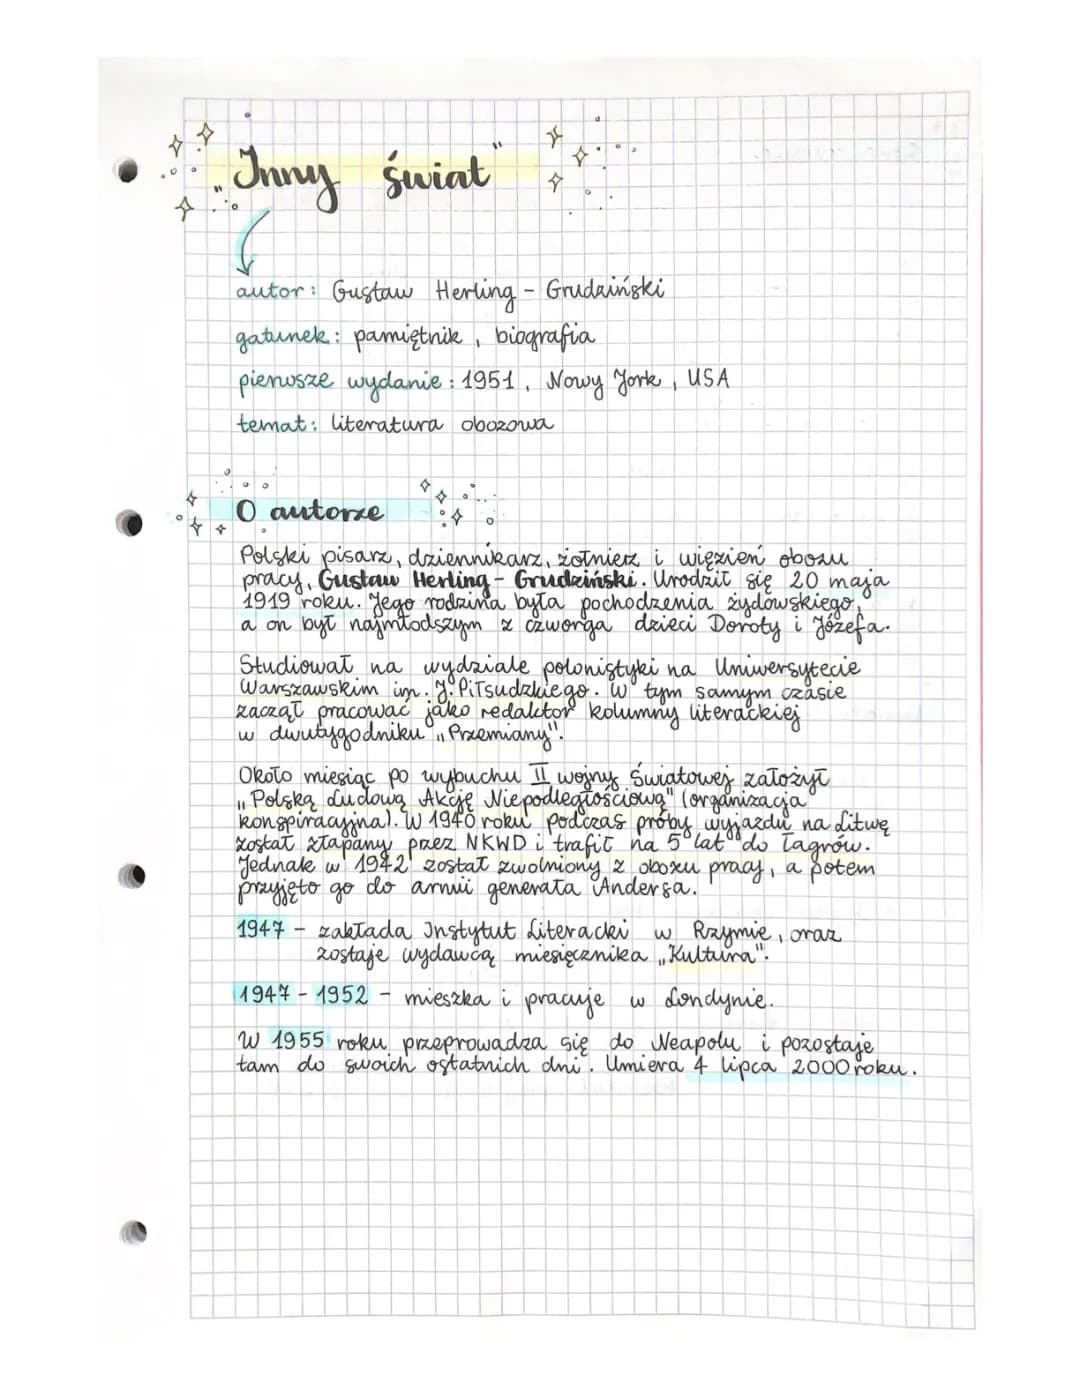 „Inny świat"
autor: Gustaw Herling - Grudziński
gatunek: pamiętnik, biografia
pierwsze wydanie: 1951, Nowy Jork, USA
temat: literatura obozowa
O autorze
Polski pisarz, dziennikarz, żołnierz i więzień obozu
pracy, Gustaw Herling - Grudziński. Urodził się 20 maja
1919 roku. Jego rodzina była pochodzenia żydowskiego,
a on był najmłodszym z czworga dzieci Doroty i Józefa.
Studiował na wydziale polonistyki na Uniwersytecie
Warszawskim im. J. Piłsudzkiego. W tym samym czasie
zaczął pracować jako redaktor kolumny literackiej
w dwutygodniku „Przemiany".
Około miesiąc po wybuchu II wojny Światowej założył
„Polską Ludową Akcję Niepodległościową" (organizacja
konspiracyjna). W 1940 roku podczas próby wyjazdu na Litwę
został złapany przez NKWD i trafił na 5 lat do łagrów.
Jednak w 1942 został zwolniony z obozu pracy, a potem
przyjęto go do armii generała Andersa.
1947 - zakłada Instytut Literacki w Rzymie, oraz
zostaje wydawcą miesięcznika „Kultura".
1947 - 1952 - mieszka i pracuje w Londynie.
W 1955 roku przeprowadza się do Neapolu i pozostaje
tam do swoich ostatnich dni. Umiera 4 lipca 2000 roku.